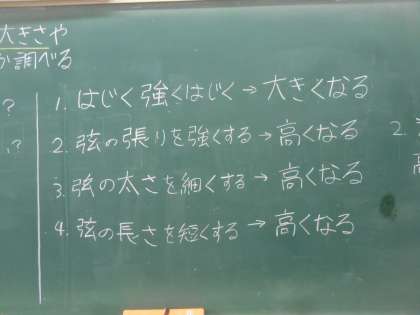 大きさや
か調べる
?
?
1. はじく強くはじく→大きくなる
2. 弦の張りを強くする→高くなる
3. 弦の太さを細くする→高くなる
4. 弦の長さを短くする→高くなる
2.